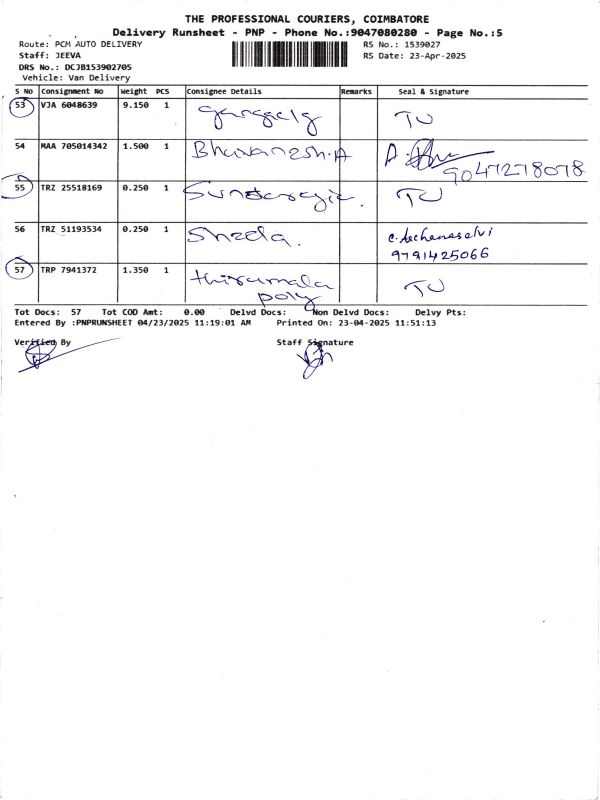 THE PROFESSIONAL COURIERS, COIMBATORE
Delivery Runsheet - PNP - Phone No.:9047080280 - Page No.:5
Route: PCM AUTO DELIVERY RS No.: 1539027
Staff: JEEVA RS Date: 23-Apr-2025
DRS No.: DCJB153902705
Vehicle: Van Delivery
S NO Consignment No Weight PCS Consignee Details Remarks Seal & Signature
53 VJA 6048639 9.150 1 TU
54 MAA 705014342 1.500 1 Bhuvanesh.A A.
9047278078
55 TRZ 25518169 0.250 1 TU
56 TRZ 51193534 0.250 1 Sheela. C. Archanaselvi
9791425066
57 TRP 7941372 1.350 1 thirumala TU
poly
Tot Docs: 57 Tot COD Amt: 0.00 Delvd Docs: Non Delvd Docs: Delvy Pts:
Entered By :PNPRUNSHEET 04/23/2025 11:19:01 AM Printed On: 23-04-2025 11:51:13
Verified By Staff Signature